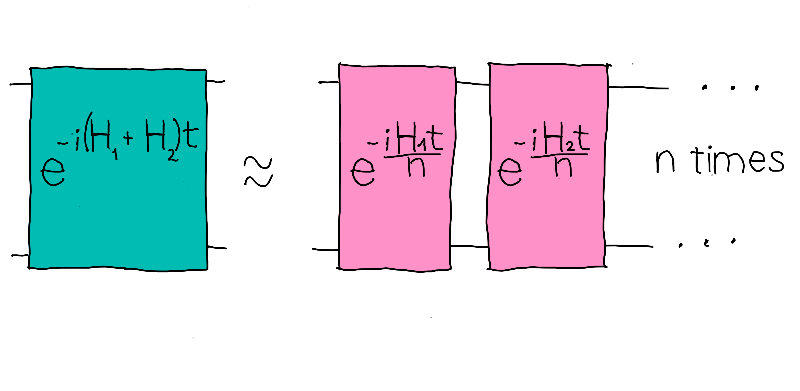 e^{-i(H_1 + H_2)t} ≈ e^{-\frac{iH_1t}{n}} e^{-\frac{iH_2t}{n}} ...
n times
...